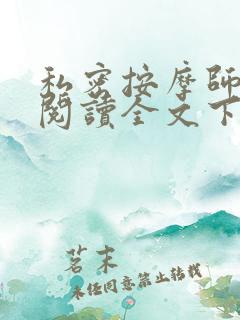 私密按摩師
閱讀全文下
茗末
未经同意禁止转载